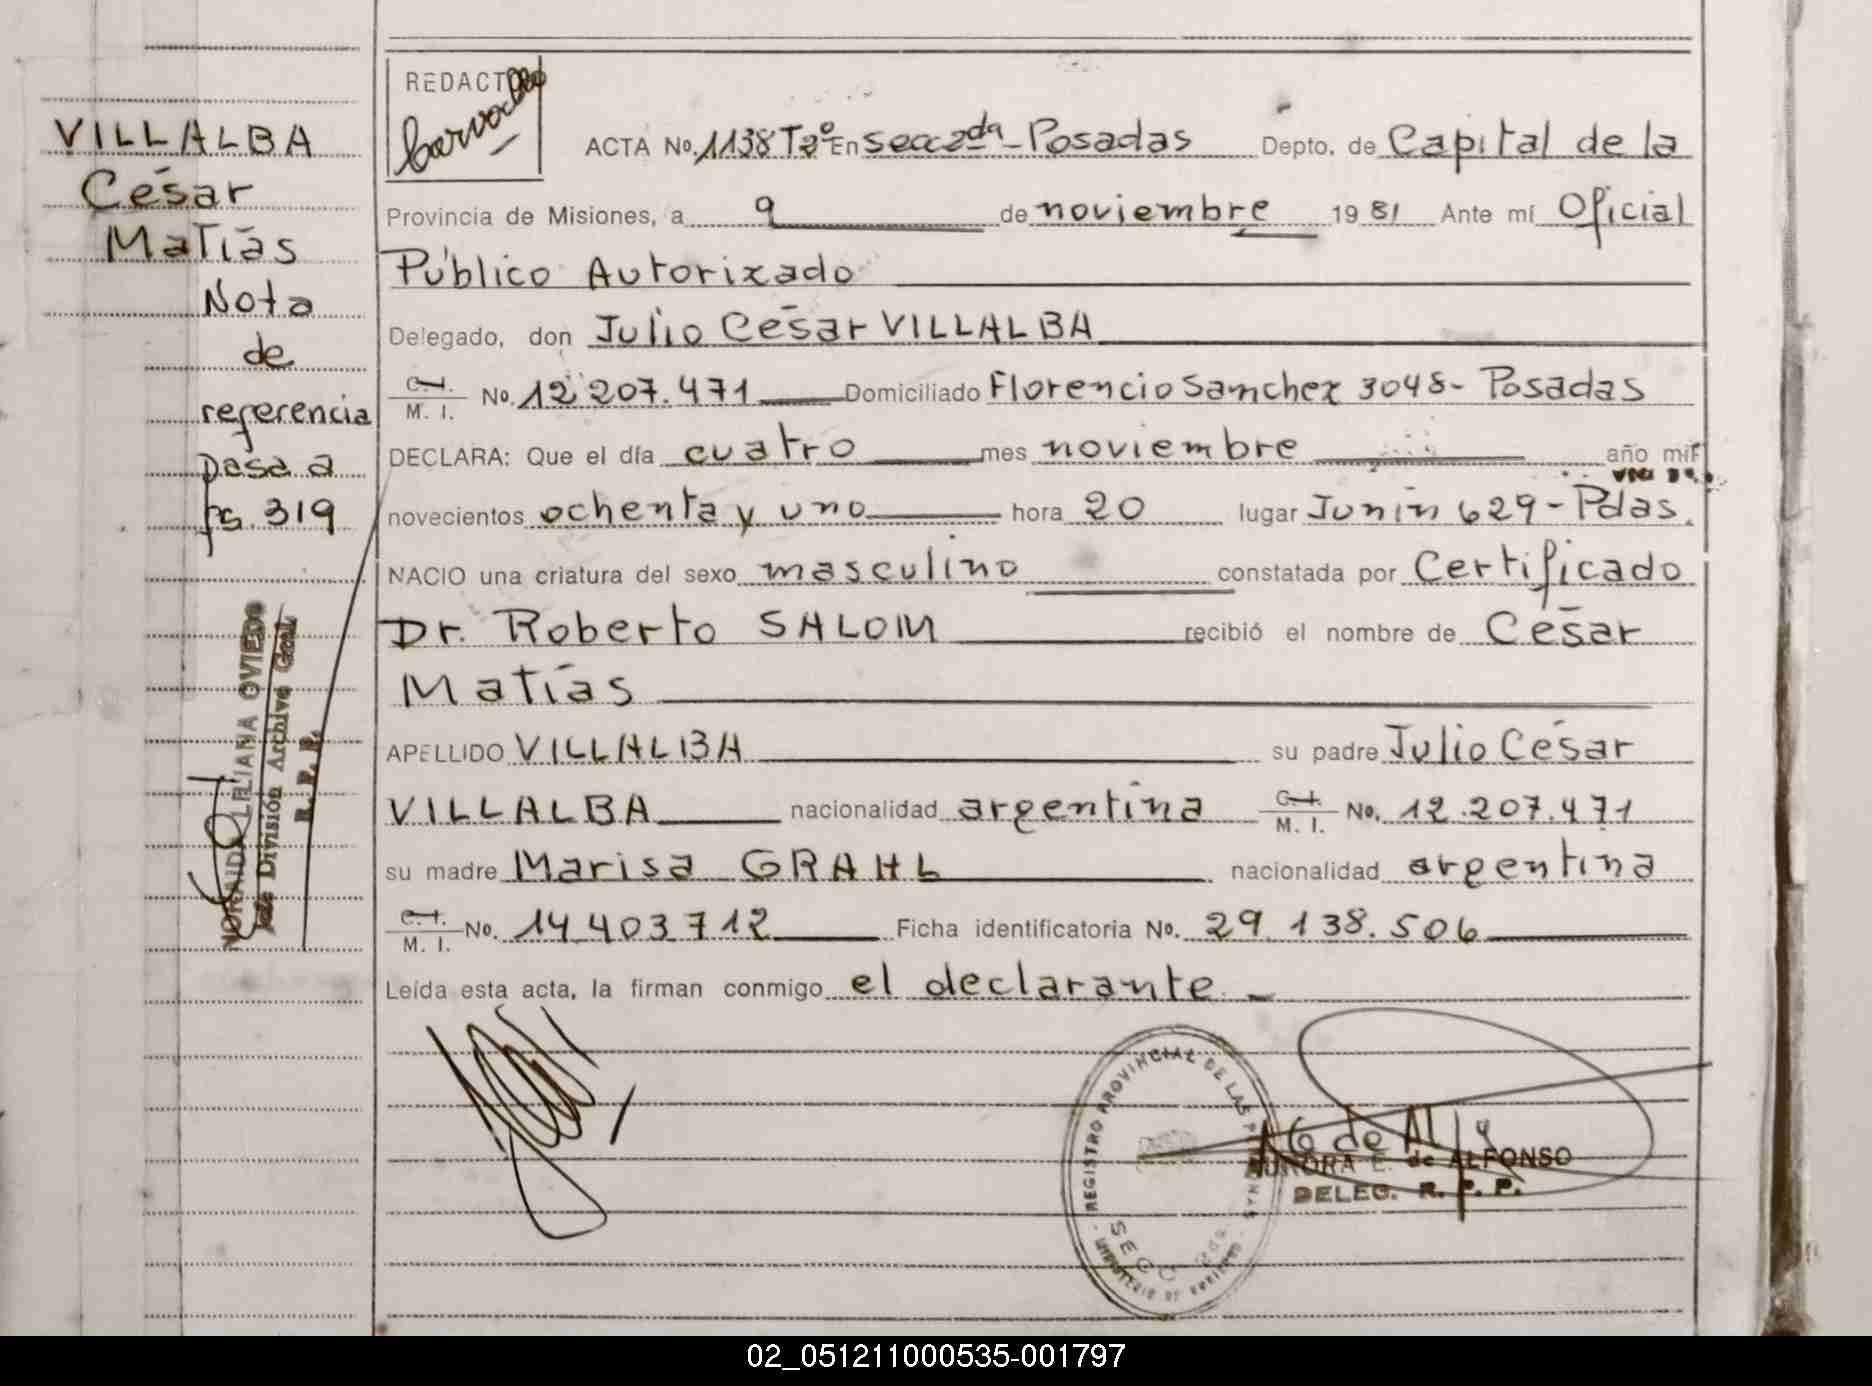 VILLALBA
César
Matías
Nota
de
referencia
pasa a
fs. 319
NORAIDA LILIANA OVIEDO
Jefe División Archivo Gral
R. P. P.
REDACTO
ACTA No. 1138 Tº2 En Secc 2da - Posadas Depto. de Capital de la
Provincia de Misiones, a 9 de noviembre 1981 Ante mí Oficial
Público Autorizado
Delegado, don Julio César VILLALBA
C. I. M. I. No. 12 207.471 Domiciliado Florencio Sanchez 3048 - Posadas
DECLARA: Que el día cuatro mes noviembre año mil
novecientos ochenta y uno hora 20 lugar Junín 629 - Pdas.
NACIO una criatura del sexo masculino constatada por Certificado
Dr. Roberto SALOM recibió el nombre de César
Matías
APELLIDO VILLALBA su padre Julio César
VILLALBA nacionalidad argentina C. I. M. I. No. 12.207.471
su madre Marisa GRAHL nacionalidad argentina
C. I. M. I. No. 14 403 712 Ficha identificatoria No. 29.138.506
Leída esta acta, la firman conmigo el declarante.-
REGISTRO PROVINCIAL DE LAS PERSONAS
SECC 2da
AURORA E. de ALFONSO
DELEG. R. P. P.
02_051211000535-001797